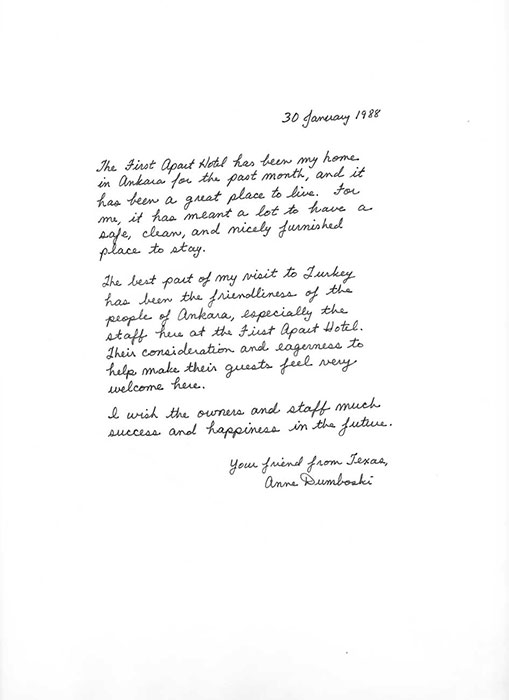 30 January 1988
The First Apart Hotel has been my home
in Ankara for the past month, and it
has been a great place to live. For
me, it has meant a lot to have a
safe, clean, and nicely furnished
place to stay.
The best part of my visit to Turkey
has been the friendliness of the
people of Ankara, especially the
staff here at the First Apart Hotel.
Their consideration and eagerness to
help make their guests feel very
welcome here.
I wish the owners and staff much
success and happiness in the future.
Your friend from Texas,
Anne Dumboski